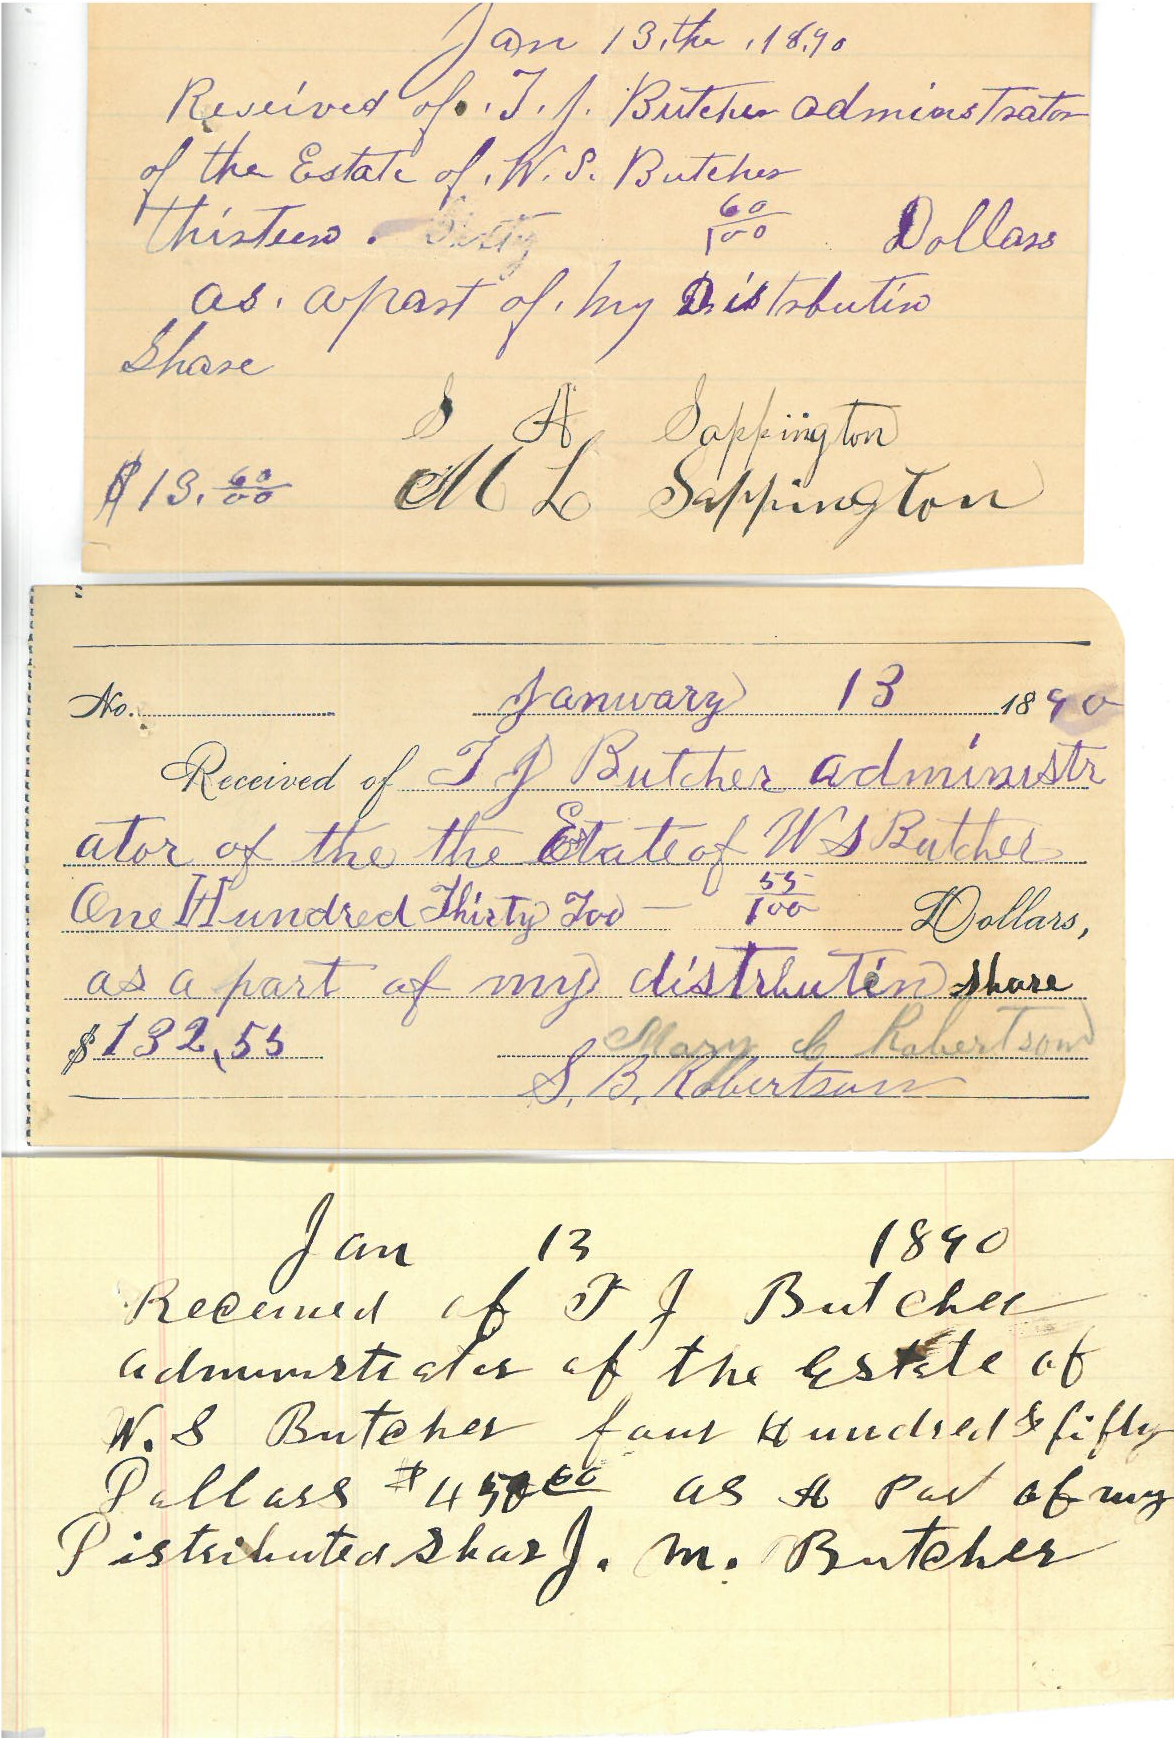 Jan 13.the .1890
Reseived of. T. J. Butcher adminstrator
of the Estate of. W. S. Butcher
thirteen. Sixty 60/100 Dollars
as. apart of. my Distributin
Share
S A Sappington
$13.60/00 M L Sappington
No. January 13 1890
Received of T J Butcher administr
ator of the the Estate of W S Butcher
One Hundred Thirty Too — 55/100 Dollars,
as a part of my distributin share
$132.55 Mary C Robertson
S. B. Robertson
Jan 13 1890
Received of T J Butcher
administrator of the Estate of
W. S Butcher four Hundred & fifty
Dollars $450 00 as A Part of my
Distributed Shar J. M. Butcher